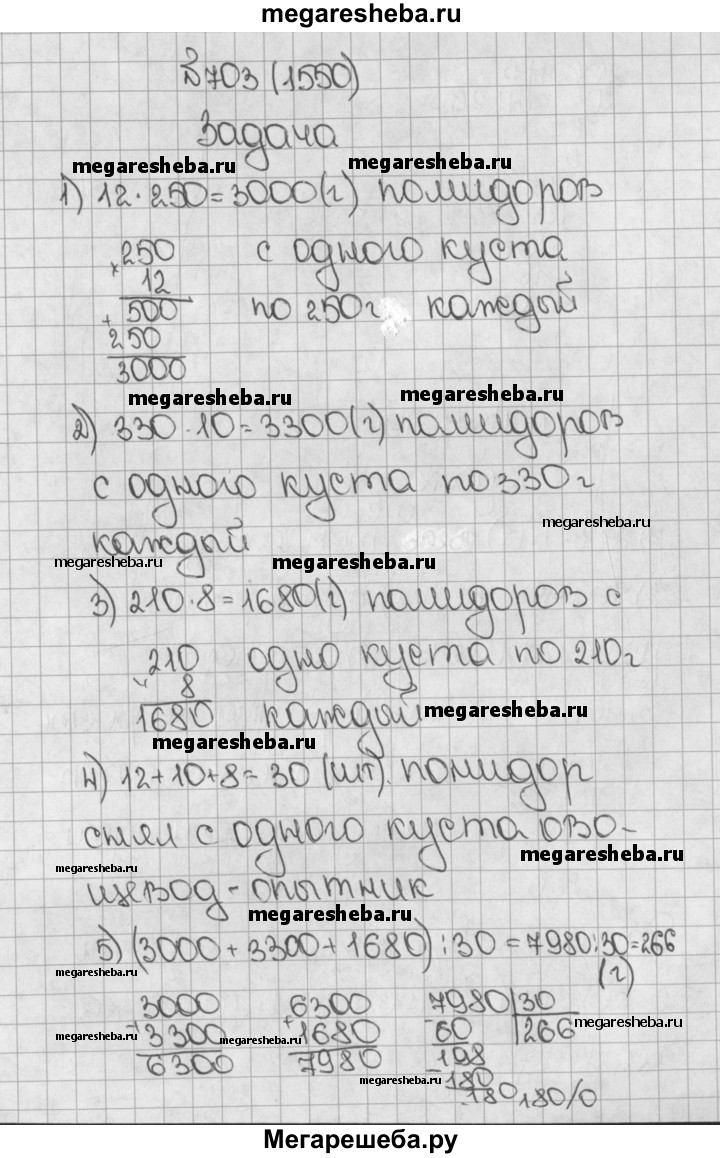 megaresheba.ru
№703 (1550)
Задача
megaresheba.ru megaresheba.ru
1) 12·250=3000(г) помидоров
250 с одного куста
× 12
500 по 250г каждый
+
250
3000
megaresheba.ru megaresheba.ru
2) 330·10=3300(г) помидоров
с одного куста по 330г
megaresheba.ru
каждый
megaresheba.ru megaresheba.ru
3) 210·8=1680(г) помидоров с
210 одно куста по 210г
× 8
1680 каждый megaresheba.ru
megaresheba.ru
4) 12+10+8=30 (шт). помидор
снял с одного куста ово-
megaresheba.ru megaresheba.ru
щевод-опытник
megaresheba.ru
5) (3000+3300+1680):30=7980:30=266
megaresheba.ru (г)
3000 6300 7980|30
+3300 +1680 -60 |266 megaresheba.ru
megaresheba.ru megaresheba.ru
6300 7980 198
megaresheba.ru -180
-180 180/0
Мегарешеба.ру